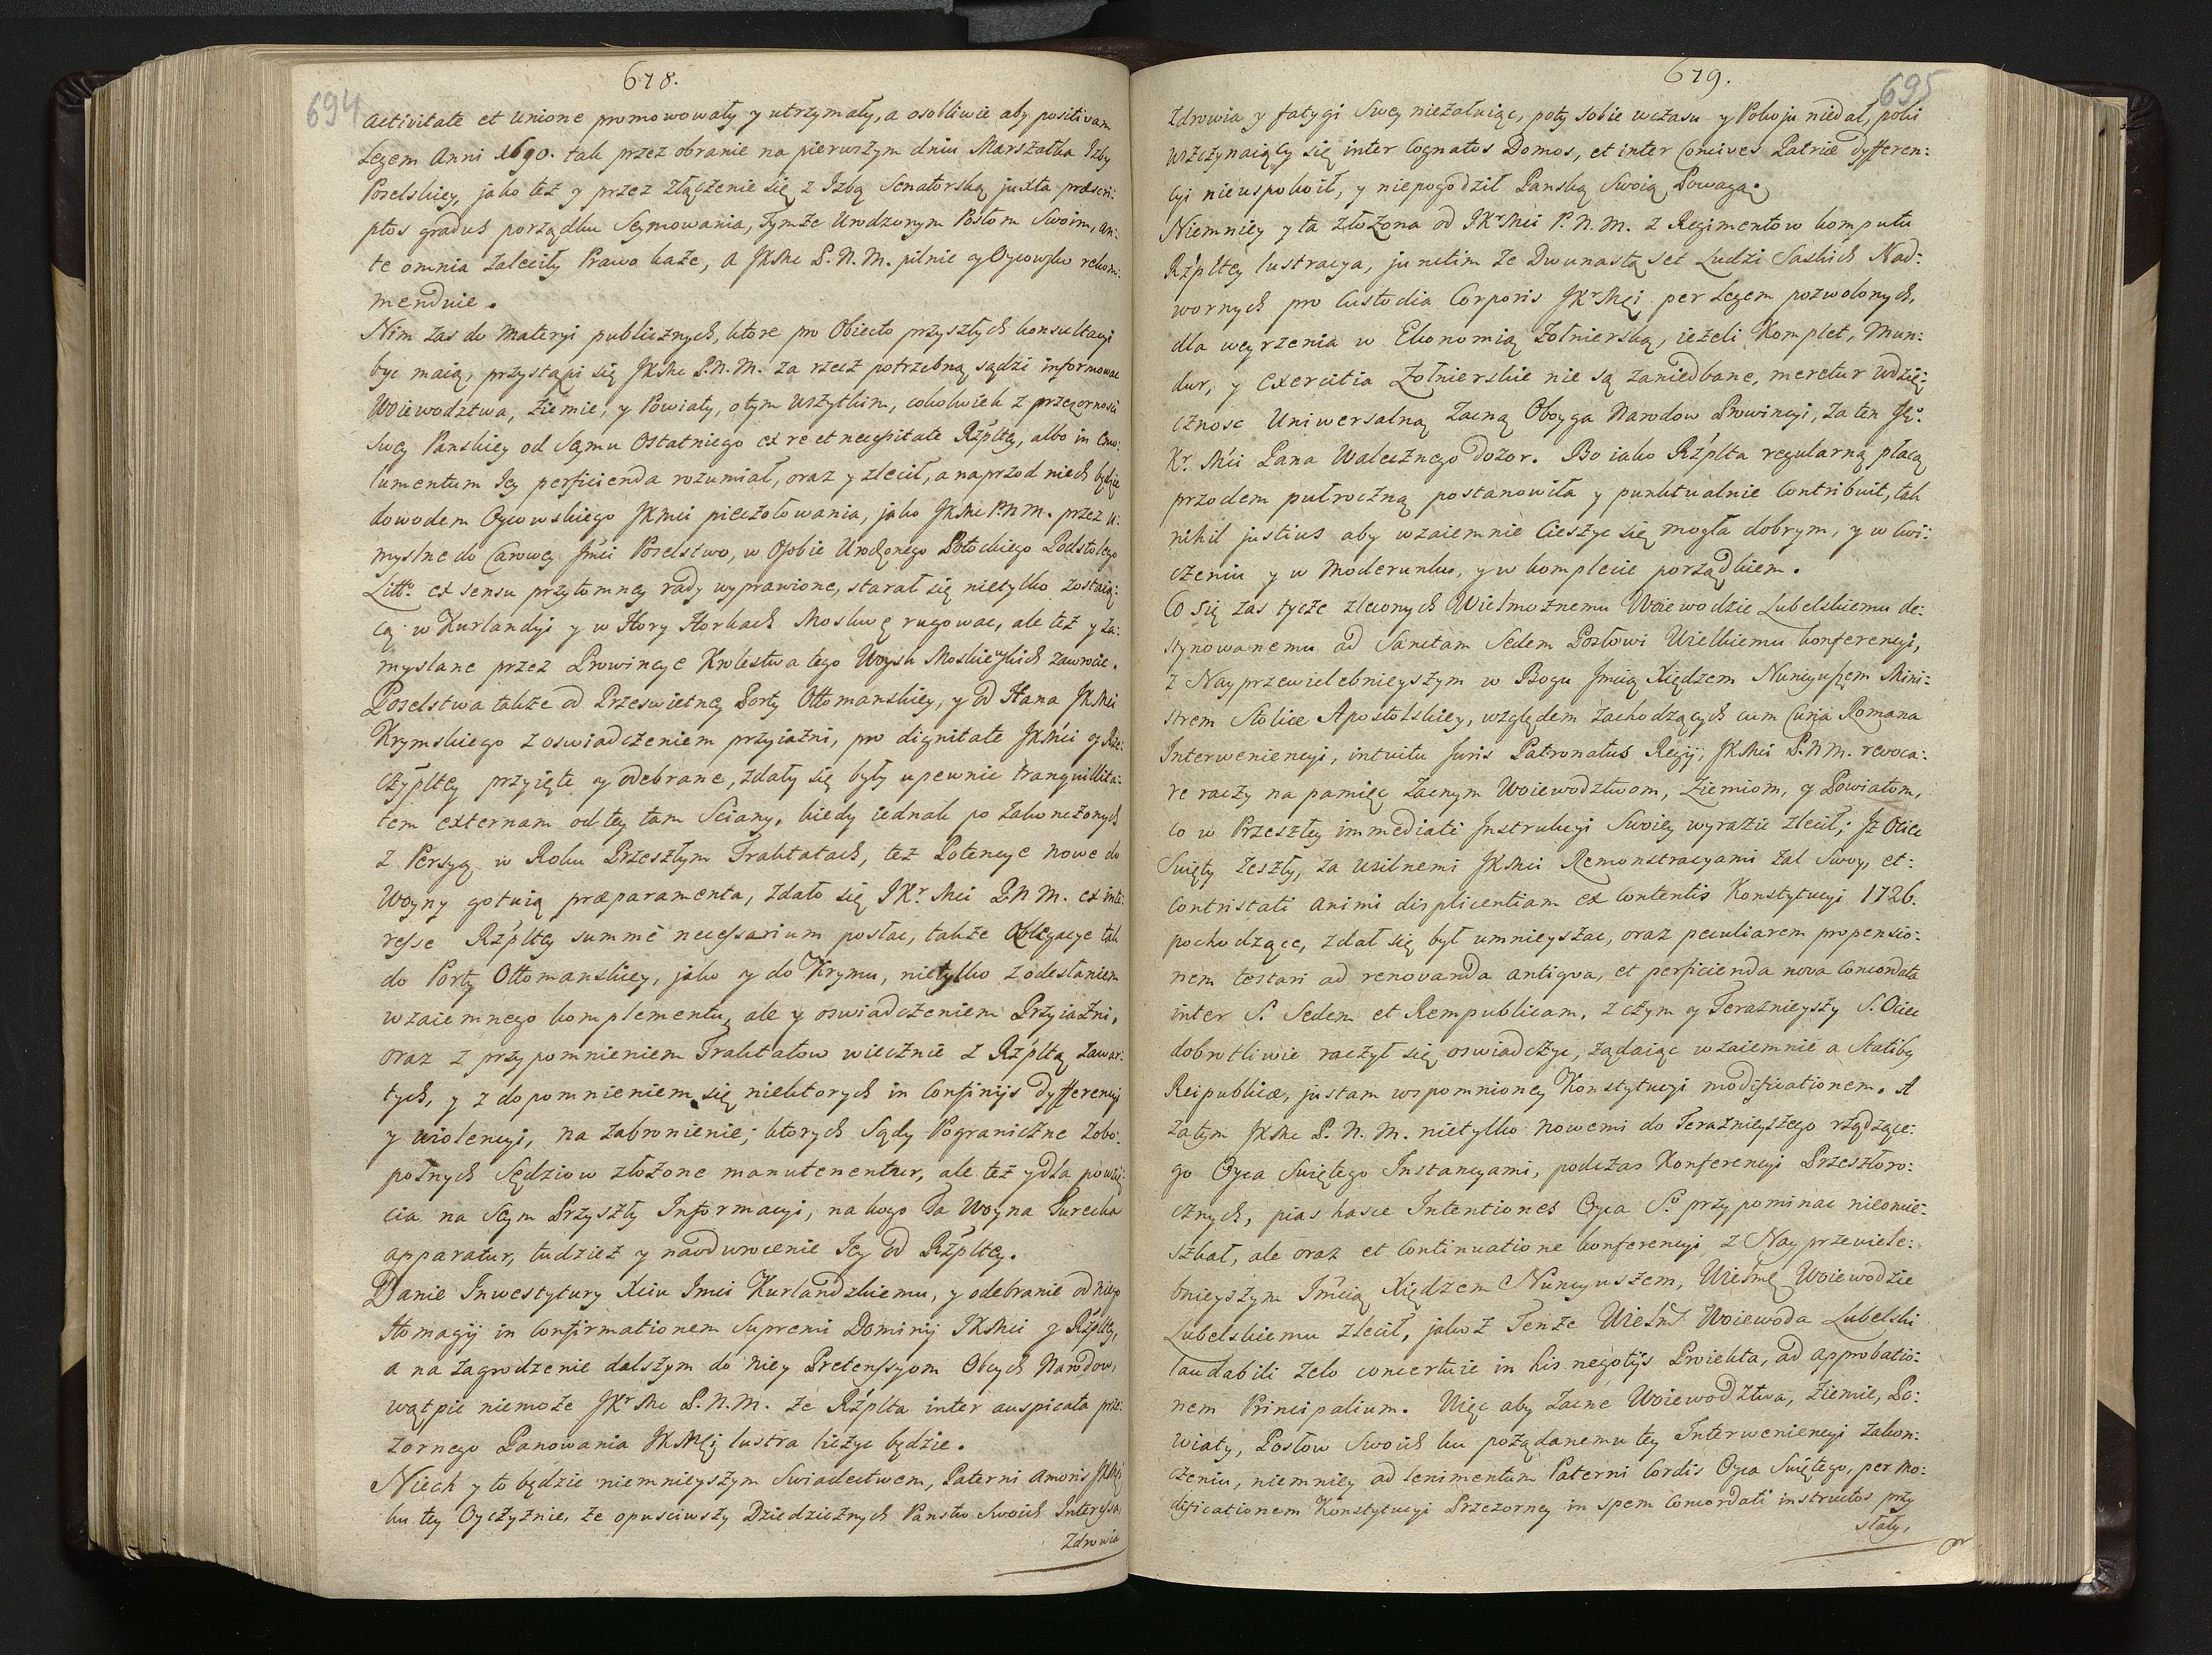 678.
694
activitate et unione promowowały y utrzymały, a osobliwie aby positivam
Legem Anni 1690. tak przez obranie na pierwszym dniu Marszałka Izby
Poselskiey, jako też y przez złączenie się z Izbą Senatorską juxta præscri:
ptos gradus porządku Seymowania, Tymże Urodzonym Posłom Swoim, an:
te omnia zaleciły Prawo każe, a JKMc P.N.M. pilnie y Oycowsko rekom:
menduie.
Nim zas do materyi publicznych, ktore pro Obiecto przyszłych konsultacyi
byc maią, przystąpi się JKMc P.N.M. za rzecz potrzebną sądzi informowac
Woiewodztwa, Ziemie, y Powiaty, o tym wszytkim, cokolwiek z przezornosci
Swey Panskiey od Seymu Ostatniego ex re et necessitate Rzpltey, albo in Emo:
lumentum Jey perficienda rozumiał, oraz y zlecił, a naprzod niech będzie
dowodem Oycowskiego JKMci pieczołowania, jako JKMc P.N.M. przez u:
myslne do Carowey Jmci Poselstwo, w Osobie Urodzonego Potockiego Podstolego
Litto. ex sensu przytomney rady wyprawione, starał się nietylko zostaią:
cą w Kurlandyi y w Hory Horkach Moskwę rugowac, ale też y za:
myslane przez Prowincye Krolestwa tego Woysk Moskiewskich zawrocic.
Poselstwa także od Przeswietney Porty Ottomanskiey, y od Hana JKMci
Krymskiego z oswiadczeniem przyiazni, pro dignitate JKMci y Rze:
czypltey przyięte y odebrane, zdały się były upewnic tranquillita:
tem externam od tey tam Sciany, kiedy iednak po zakonczonych
z Persyą w Roku Przeszłym Traktatach, też Potencye nowe do
Woyny gotuią præparamenta, zdało się JKr. Mci P.N.M. ex inte:
resse Rzpltey summè necessarium posłac, także Oblegacye tak
do Porty Ottomanskiey, jako y do Krymu, nietylko z odesłaniem
wzaiemnego komplementu, ale y oswiadczeniem Przyiazni,
oraz z przypomnieniem Traktatow wiecznie z Rzpltą zawar:
tych, y z dopomnieniem się niektorych in Confinijs dyfferencyi
y wiolencyi, na zabronienie; ktorych Sądy Pograniczne z obo:
polnych Sędziow złożone manutenentur, ale też y dla powzię:
cia na Seym Przyszły Informacyi, na kogo ta Woyna Turecka
apparatur, tudzież y na odwrocenie Jey od Rzpltey.
Danie Inwestytury Xciu Jmci Kurlandzkiemu, y odebranie od niego
Homagij in Confirmationem Supremi Dominij JKMci y Rzpltey,
a na zagrodzenie dalszym do niey Pretenssyom Obcych Narodow,
wątpic niemoże JKrMc P.N.M. że Rzplta inter auspicata prze:
zornego Panowania JKMci lustra liczyc będzie.
Niech y to będzie niemnieyszym Swiadectwem, Paterni Amoris JKMci
ku tey Oyczyznie, że opusciwszy Dziedzicznych Panstw Swoich Interessa,
Zdrowia
679.
695
Zdrowia y fatygi Swey nieżałuiąc, poty sobie wczasu y Pokoju niedał, poki
wszczynaiący się inter Cognatos Domos, et inter Concives Patriæ dyfferen:
cyi nieuspokoił, y niepogodził Panską Swoią Powagą.
Niemniey y ta złożona od JKrMci P.N.M. z Regimentow komputu
Rzpltey lustracya, junctim ze Dwunastą set Ludzi Saskich Nad:
wornych pro Custodia Corporis JKrMci per Legem pozwolonych,
dla weyrzenia w Ekonomią Żołnierską, ieżeli Komplet, Mun:
dur, y Exercitia Żołnierskie nie są zaniedbane, meretur wdzię:
cznosc Uniwersalną zacną Oboyga Narodow Prowincyi, za ten Jeo.
Kr. Mci Pana Walecznego dozor. Bo iako Rzplta regularną płacą
przodem pułroczną postanowiła y punktualnie Contribuit, tak
nihil justius aby wzaiemnie Cieszyc się mogła dobrym, y w cwi:
czeniu y w Moderunku, y w komplecie porządkiem.
Co się zas tycze zleconych Wielmożnemu Woiewodzie Lubelskiemu de:
stynowanemu ad Sanctam Sedem Posłowi Wielkiemu konferencyi,
z Nayprzewielebnieyszym w Bogu Jmcią Xiędzem Nuncyuszem Mini:
strem Stolice Apostolskiey, względem zachodzących cum Curia Romana
Interweniencyi, intuitu Juris Patronatus Regij, JKMci P.N.M. revoca:
re raczy na pamięc zacnym Woiewodztwom, Ziemiom, y Powiatom,
co w Przeszłey immediatè Instrukcyi Swoiey wyrazic zlecił; Jż Ociec
Swięty Zeszły, za usilnemi JKMci Remonstracyami żal Swoy, et:
contristati animi displicentiam ex Contentis Konstytucyi 1726.
pochodzące, zdał się był umnieyszac, oraz peculiarem propensio:
nem testari ad renovanda antiqva, et perficienda nova Concordata
inter S. Sedem et Rempublicam, z czym y Teraznieyszy S. Ociec
dobrotliwie raczył się oswiadczyc, żądaiąc wzaiemnie a Statibq
Reipublicæ, justam wspomnioney Konstytucyi modificationem. A
zatym JKMc P.N.M. nietylko nowemi do Teraznieyszego rządzące:
go Oyca Swiętego Instancyami, podczas Konferencyi Przeszłoro:
cznych, pias hasce Intentiones Oyca So. przypominac nieomie:
szkał, ale oraz et Continuatione konferencyi z Nayprzewiele:
bnieyszym Jmcią Xiędzem Nuncyuszem, Wielmę Woiewodzie
Lubelskiemu zlecił, jakoż Tenże Wielmy Woiewoda Lubelski
laudabili Zelo concertuie in his negotijs Proiekta, ad approbatio:
nem Principalium. Więc aby zacne Woiewodztwa, Ziemie, Po:
wiaty, Posłow Swoich ku pożądanemu tey Interweniencyi zakon:
czeniu, niemniey ad lenimentum Paterni Cordis Oyca Swiętego, per mo:
dificationem Konstytucyi Przezorney in spem Concordati instructos przy
słały,